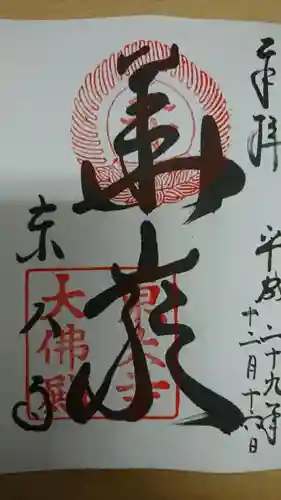 奉拝
平成二十九年
十二月十六日
華嚴
東大寺
東大寺
大佛殿